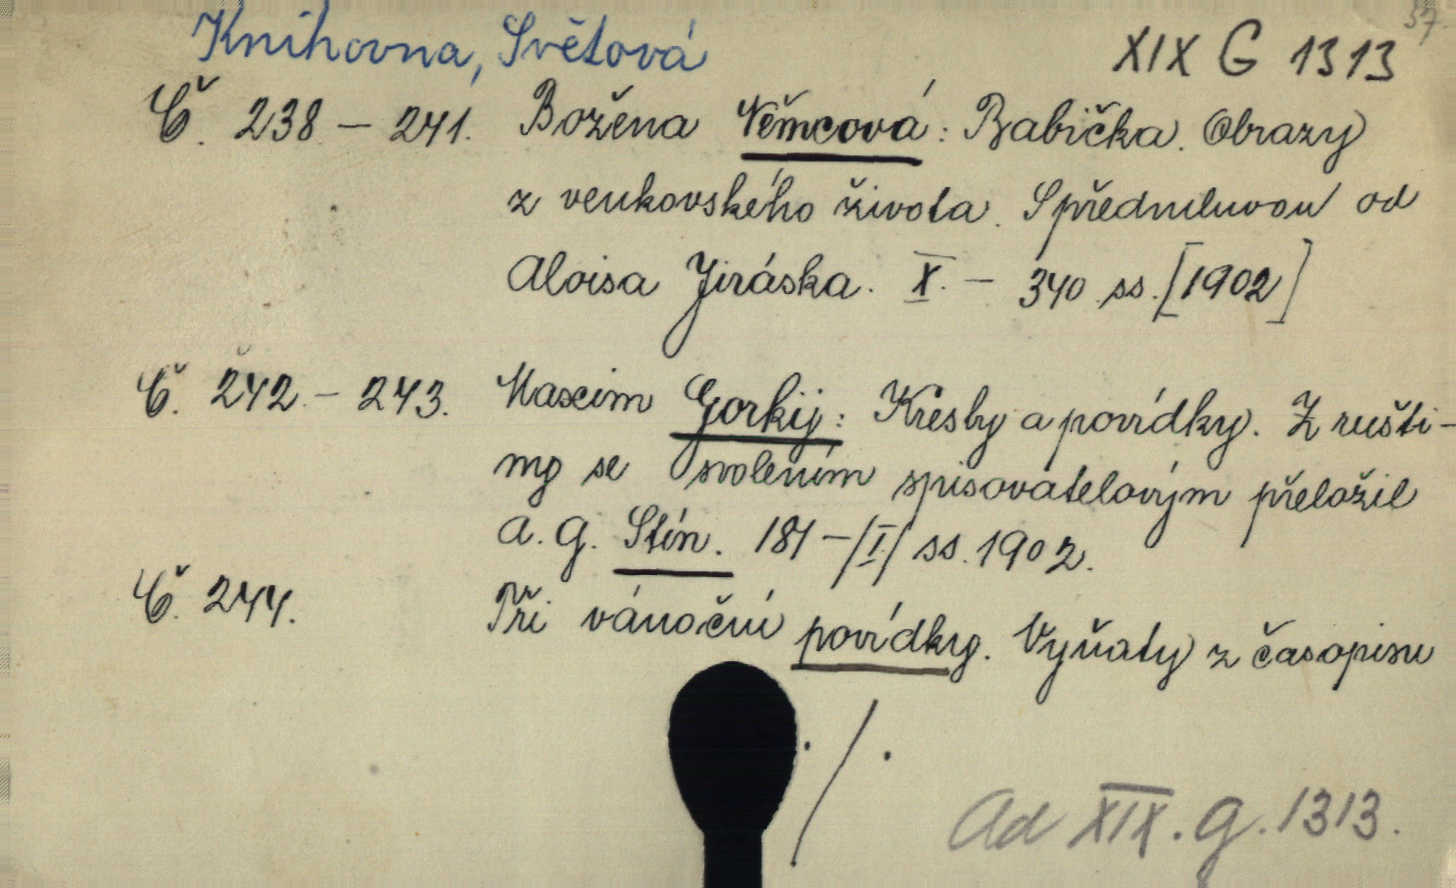 37.
Knihovna, Světová XIX G 1313
Č. 238 – 241. Božena Němcová: Babička. Obrazy
z venkovského života. S předmluvou od
Aloisa Jiráska. X. – 340 ss. [1902]
Č. 242 – 243. Maxim Gorkij: Kresby a povídky. Z rušti-
ny se svolením spisovatelovým přeložil
A. G. Stín. 181 – /I/ ss. 1902.
Č. 244. Tři vánoční povídky. Vyňaty z časopisu
./.
Ad XIX. G. 1313.